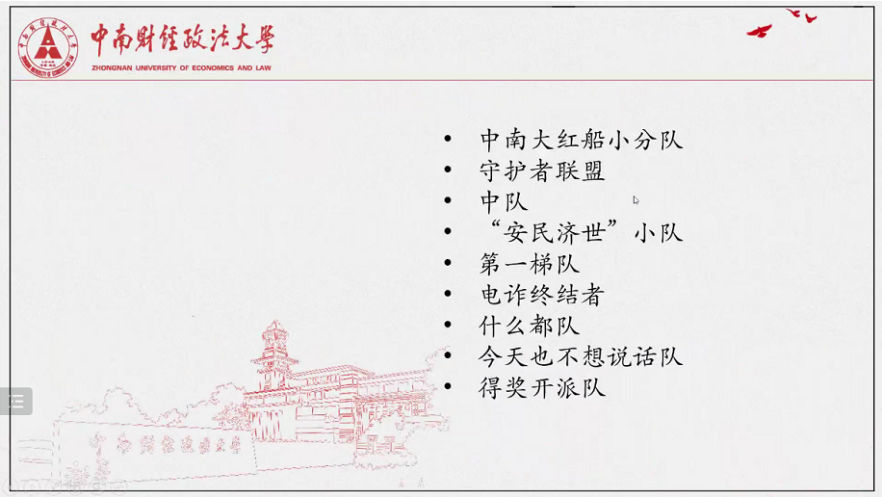 中南财经政法大学
ZHONGNAN UNIVERSITY OF ECONOMICS AND LAW
• 中南大红船小分队
• 守护者联盟
• 中队
• “安民济世”小队
• 第一梯队
• 电诈终结者
• 什么都队
• 今天也不想说话队
• 得奖开派队
中南财经政法大学